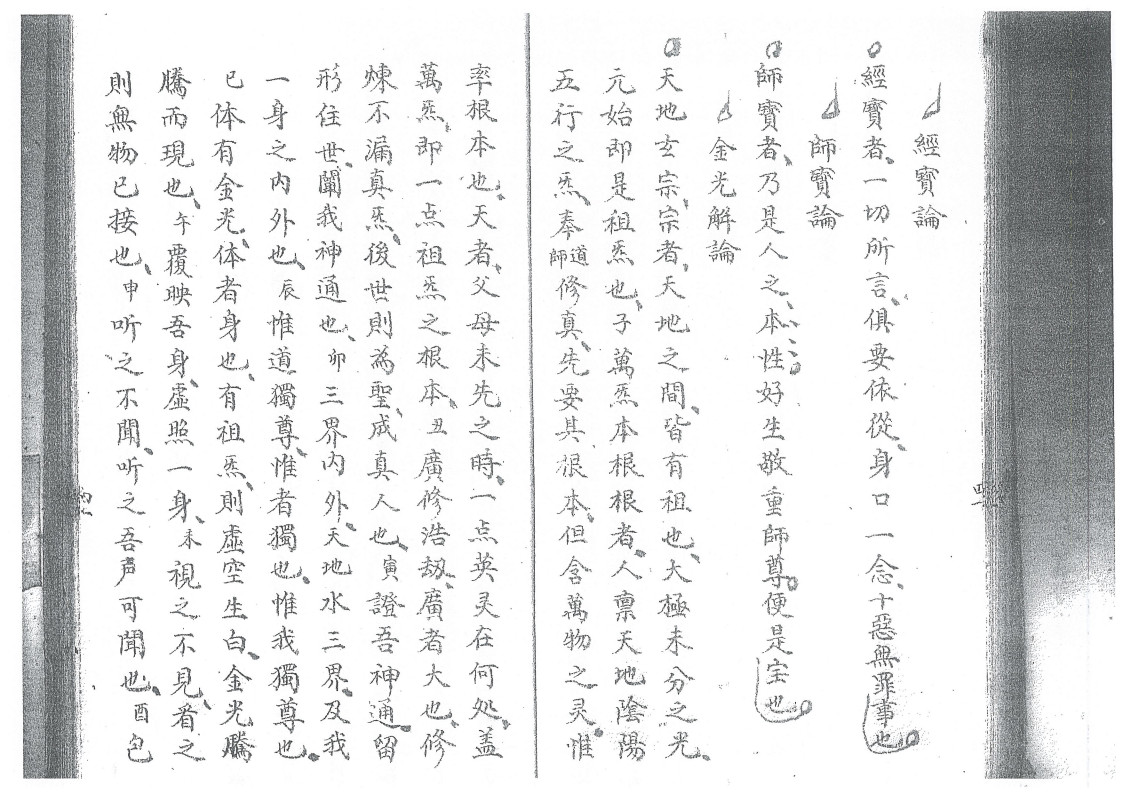 經寶論
經寶者、一切所言、俱要依從、身口一念、十惡無罪事也
師寶論
師寶者、乃是人之本性好生敬重師尊便是宝也
金光解論
天地玄宗、宗者、天地之間、皆有祖也、大極未分之光、
元始即是祖炁也、子萬炁本根根者、人稟天地陰陽
五行之炁、奉道師修真、先要其根本、但含萬物之灵、惟
率根本也、天者、父母未先之時、一点英灵在何处、盖
萬炁、即一点祖炁之根本、丑廣修浩劫、廣者大也、修
煉不漏真炁、後世則為聖、成真人也、寅證吾神通、留
形住世、闡我神通也、卯三界內外、天地水三界、及我
一身之内外也、辰惟道獨尊、惟者獨也、惟我獨尊也、
巳体有金光、体者身也、有祖炁、則虛空生白、金光騰
騰而現也、午覆映吾身、虛照一身、未視之不見、看之
則無物已接也、申听之不聞、听之吾声可聞也、酉包